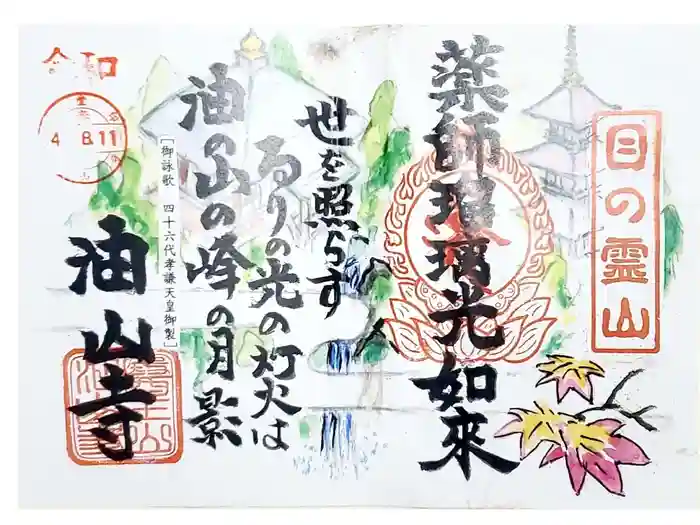 目の霊山
薬師瑠璃光如來
世を照らす
るりの光の灯火は
油の山の峰の月影
[御詠歌 四十六代孝謙天皇御製]
令和
4 8.11
油山寺